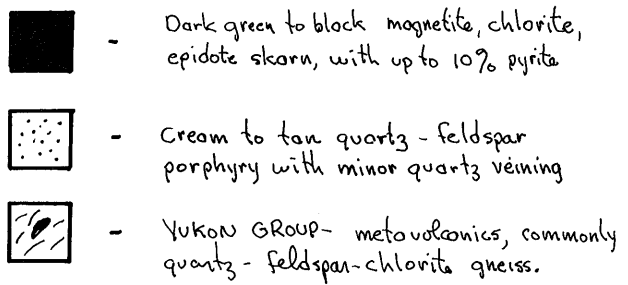 - Dark green to block magnetite, chlorite,
epidote skarn, with up to 10% pyrite
- Cream to tan quartz - feldspar
porphyry with minor quartz veining
- YUKON GROUP - metavolcanics, commonly
quartz - feldspar-chlorite gneiss.